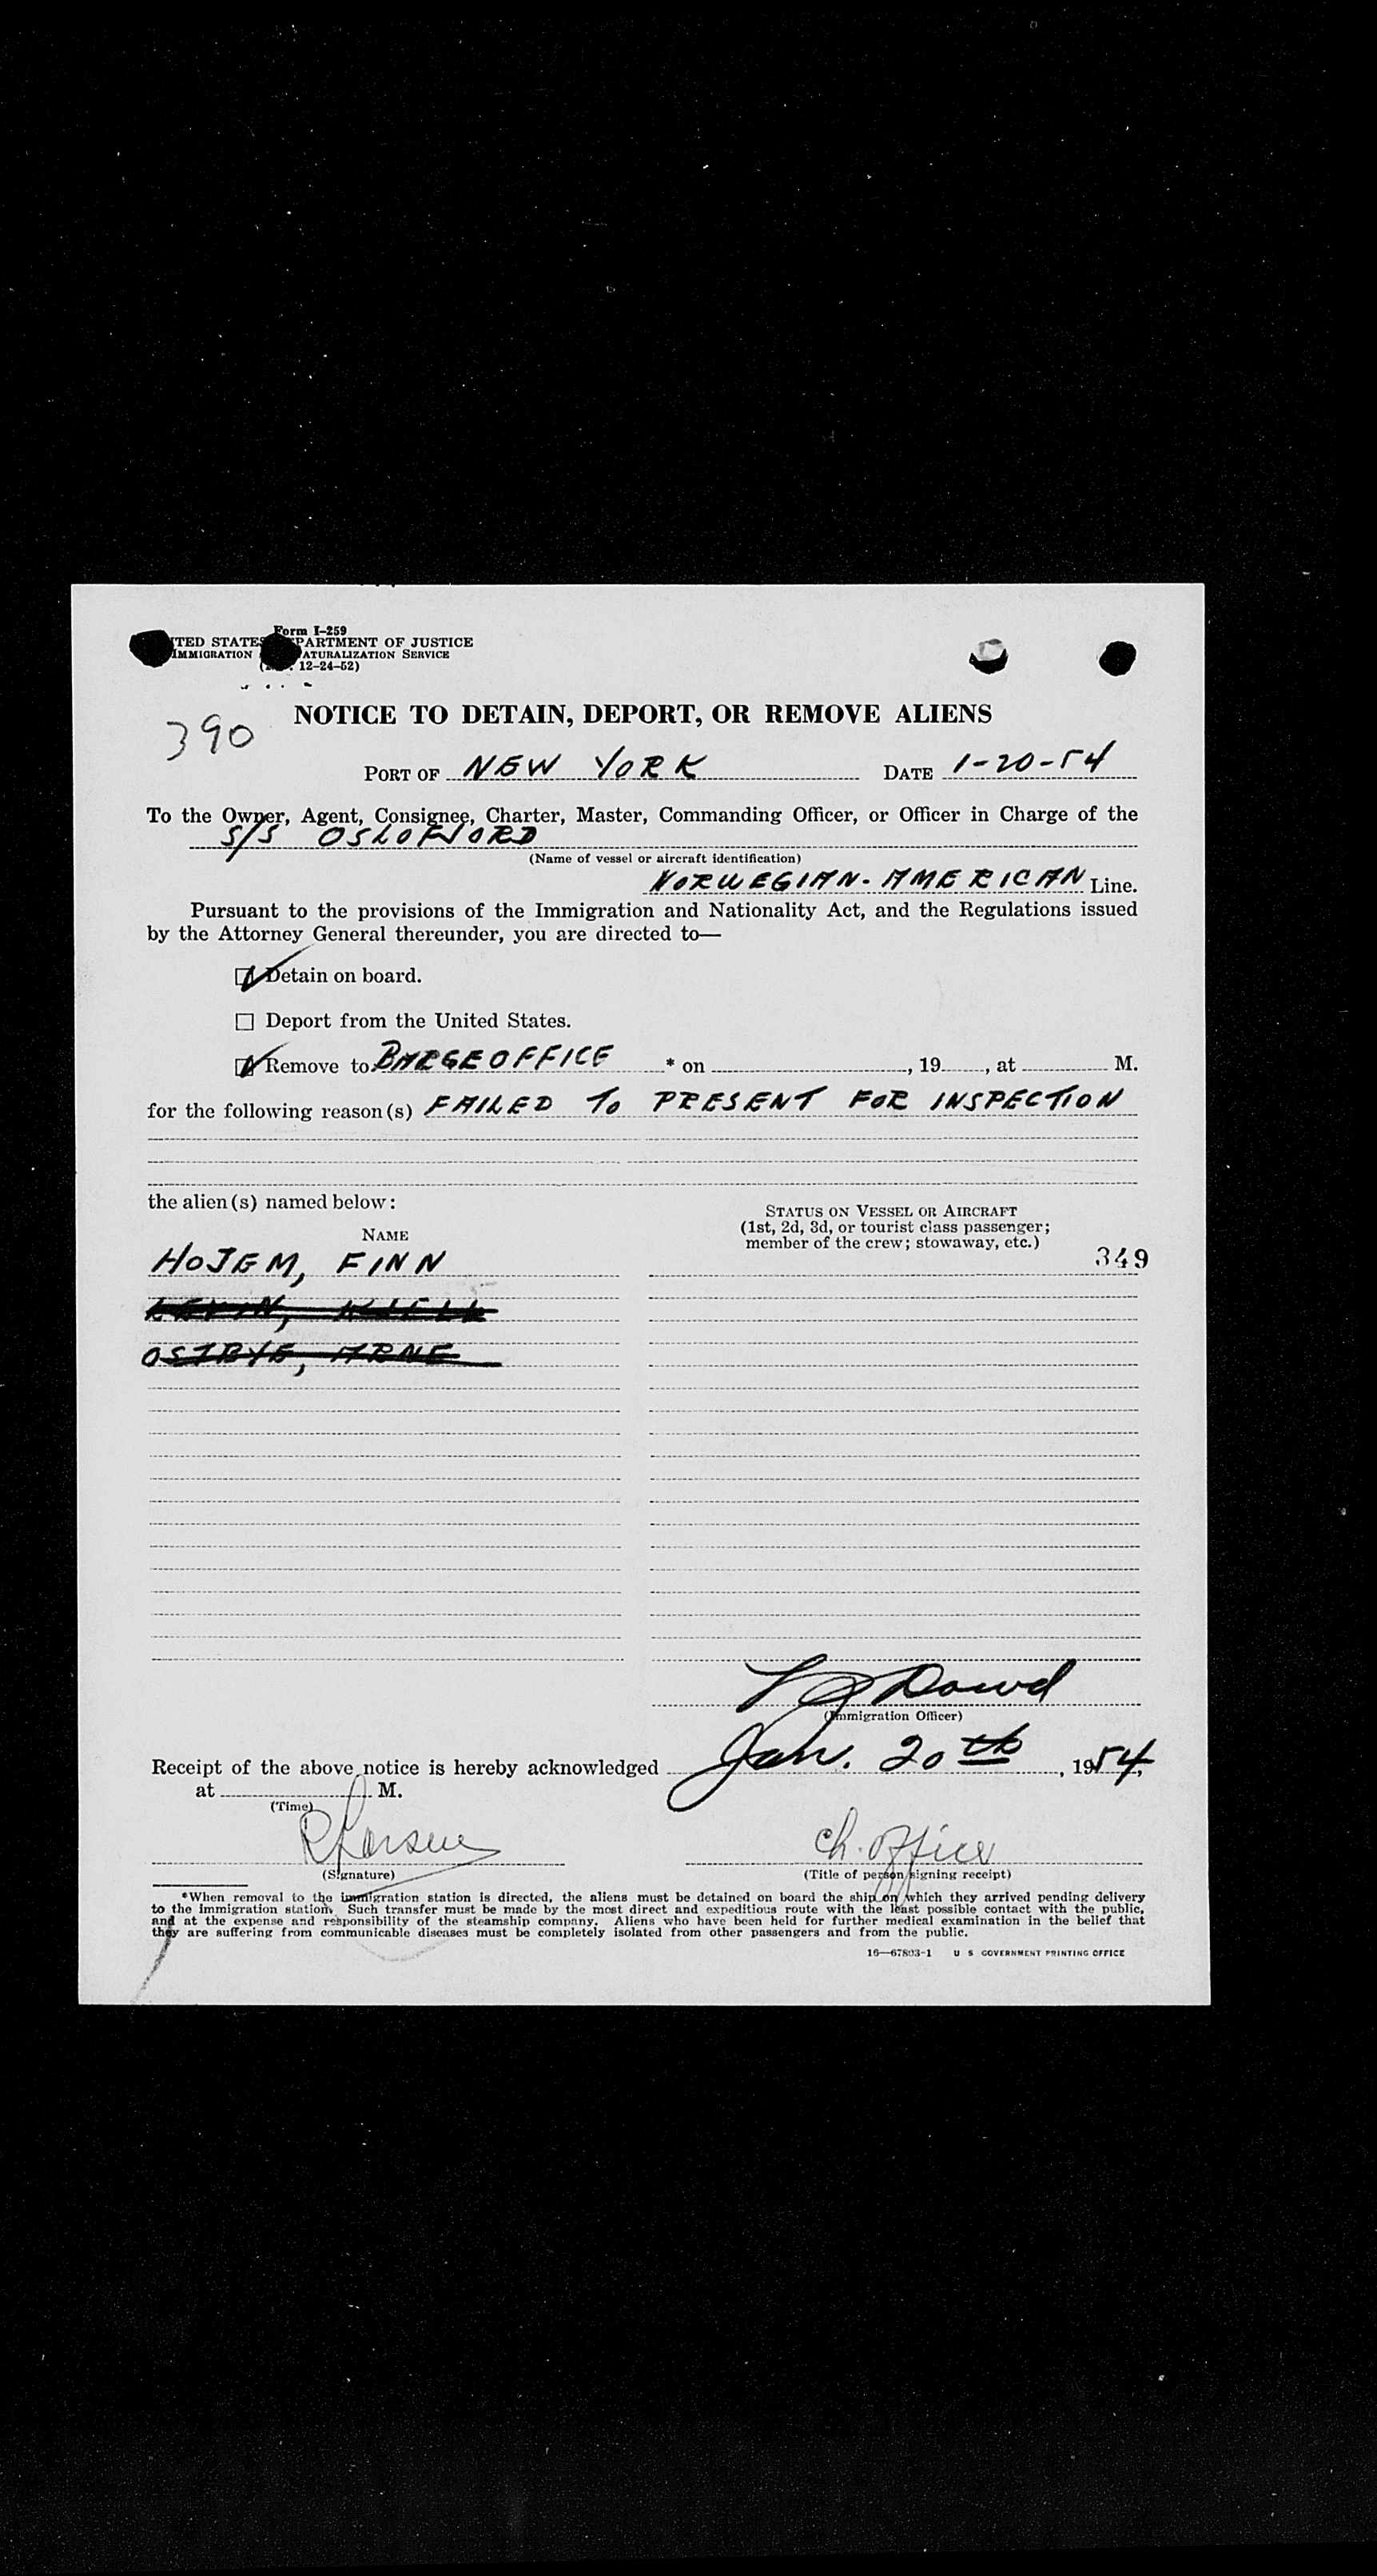 Form I-259
TED STATES PARTMENT OF JUSTICE
IMMIGRATION ATURALIZATION SERVICE
12-24-52)
390
NOTICE TO DETAIN, DEPORT, OR REMOVE ALIENS
PORT OF NEW YORK DATE 1-20-54
To the Owner, Agent, Consignee, Charter, Master, Commanding Officer, or Officer in Charge of the
S/S OSLOFJORD
(Name of vessel or aircraft identification)
NORWEGIAN-AMERICAN Line.
Pursuant to the provisions of the Immigration and Nationality Act, and the Regulations issued
by the Attorney General thereunder, you are directed to—
Detain on board.
Deport from the United States.
Remove to BARGE OFFICE * on , 19 , at M.
for the following reason(s) FAILED TO PRESENT FOR INSPECTION
the alien(s) named below:
STATUS ON VESSEL OR AIRCRAFT
(1st, 2d, 3d, or tourist class passenger;
member of the crew; stowaway, etc.)
NAME
349
HOJEM, FINN
OSTBYE, ARNE
Dowd
(Immigration Officer)
Receipt of the above notice is hereby acknowledged Jan. 20th, 1954,
at M.
(Time)
R Larsen ch. office
(Signature) (Title of person signing receipt)
*When removal to the immigration station is directed, the aliens must be detained on board the ship on which they arrived pending delivery
to the immigration station. Such transfer must be made by the most direct and expeditious route with the least possible contact with the public,
and at the expense and responsibility of the steamship company. Aliens who have been held for further medical examination in the belief that
they are suffering from communicable diseases must be completely isolated from other passengers and from the public.
16—67803-1 U S GOVERNMENT PRINTING OFFICE